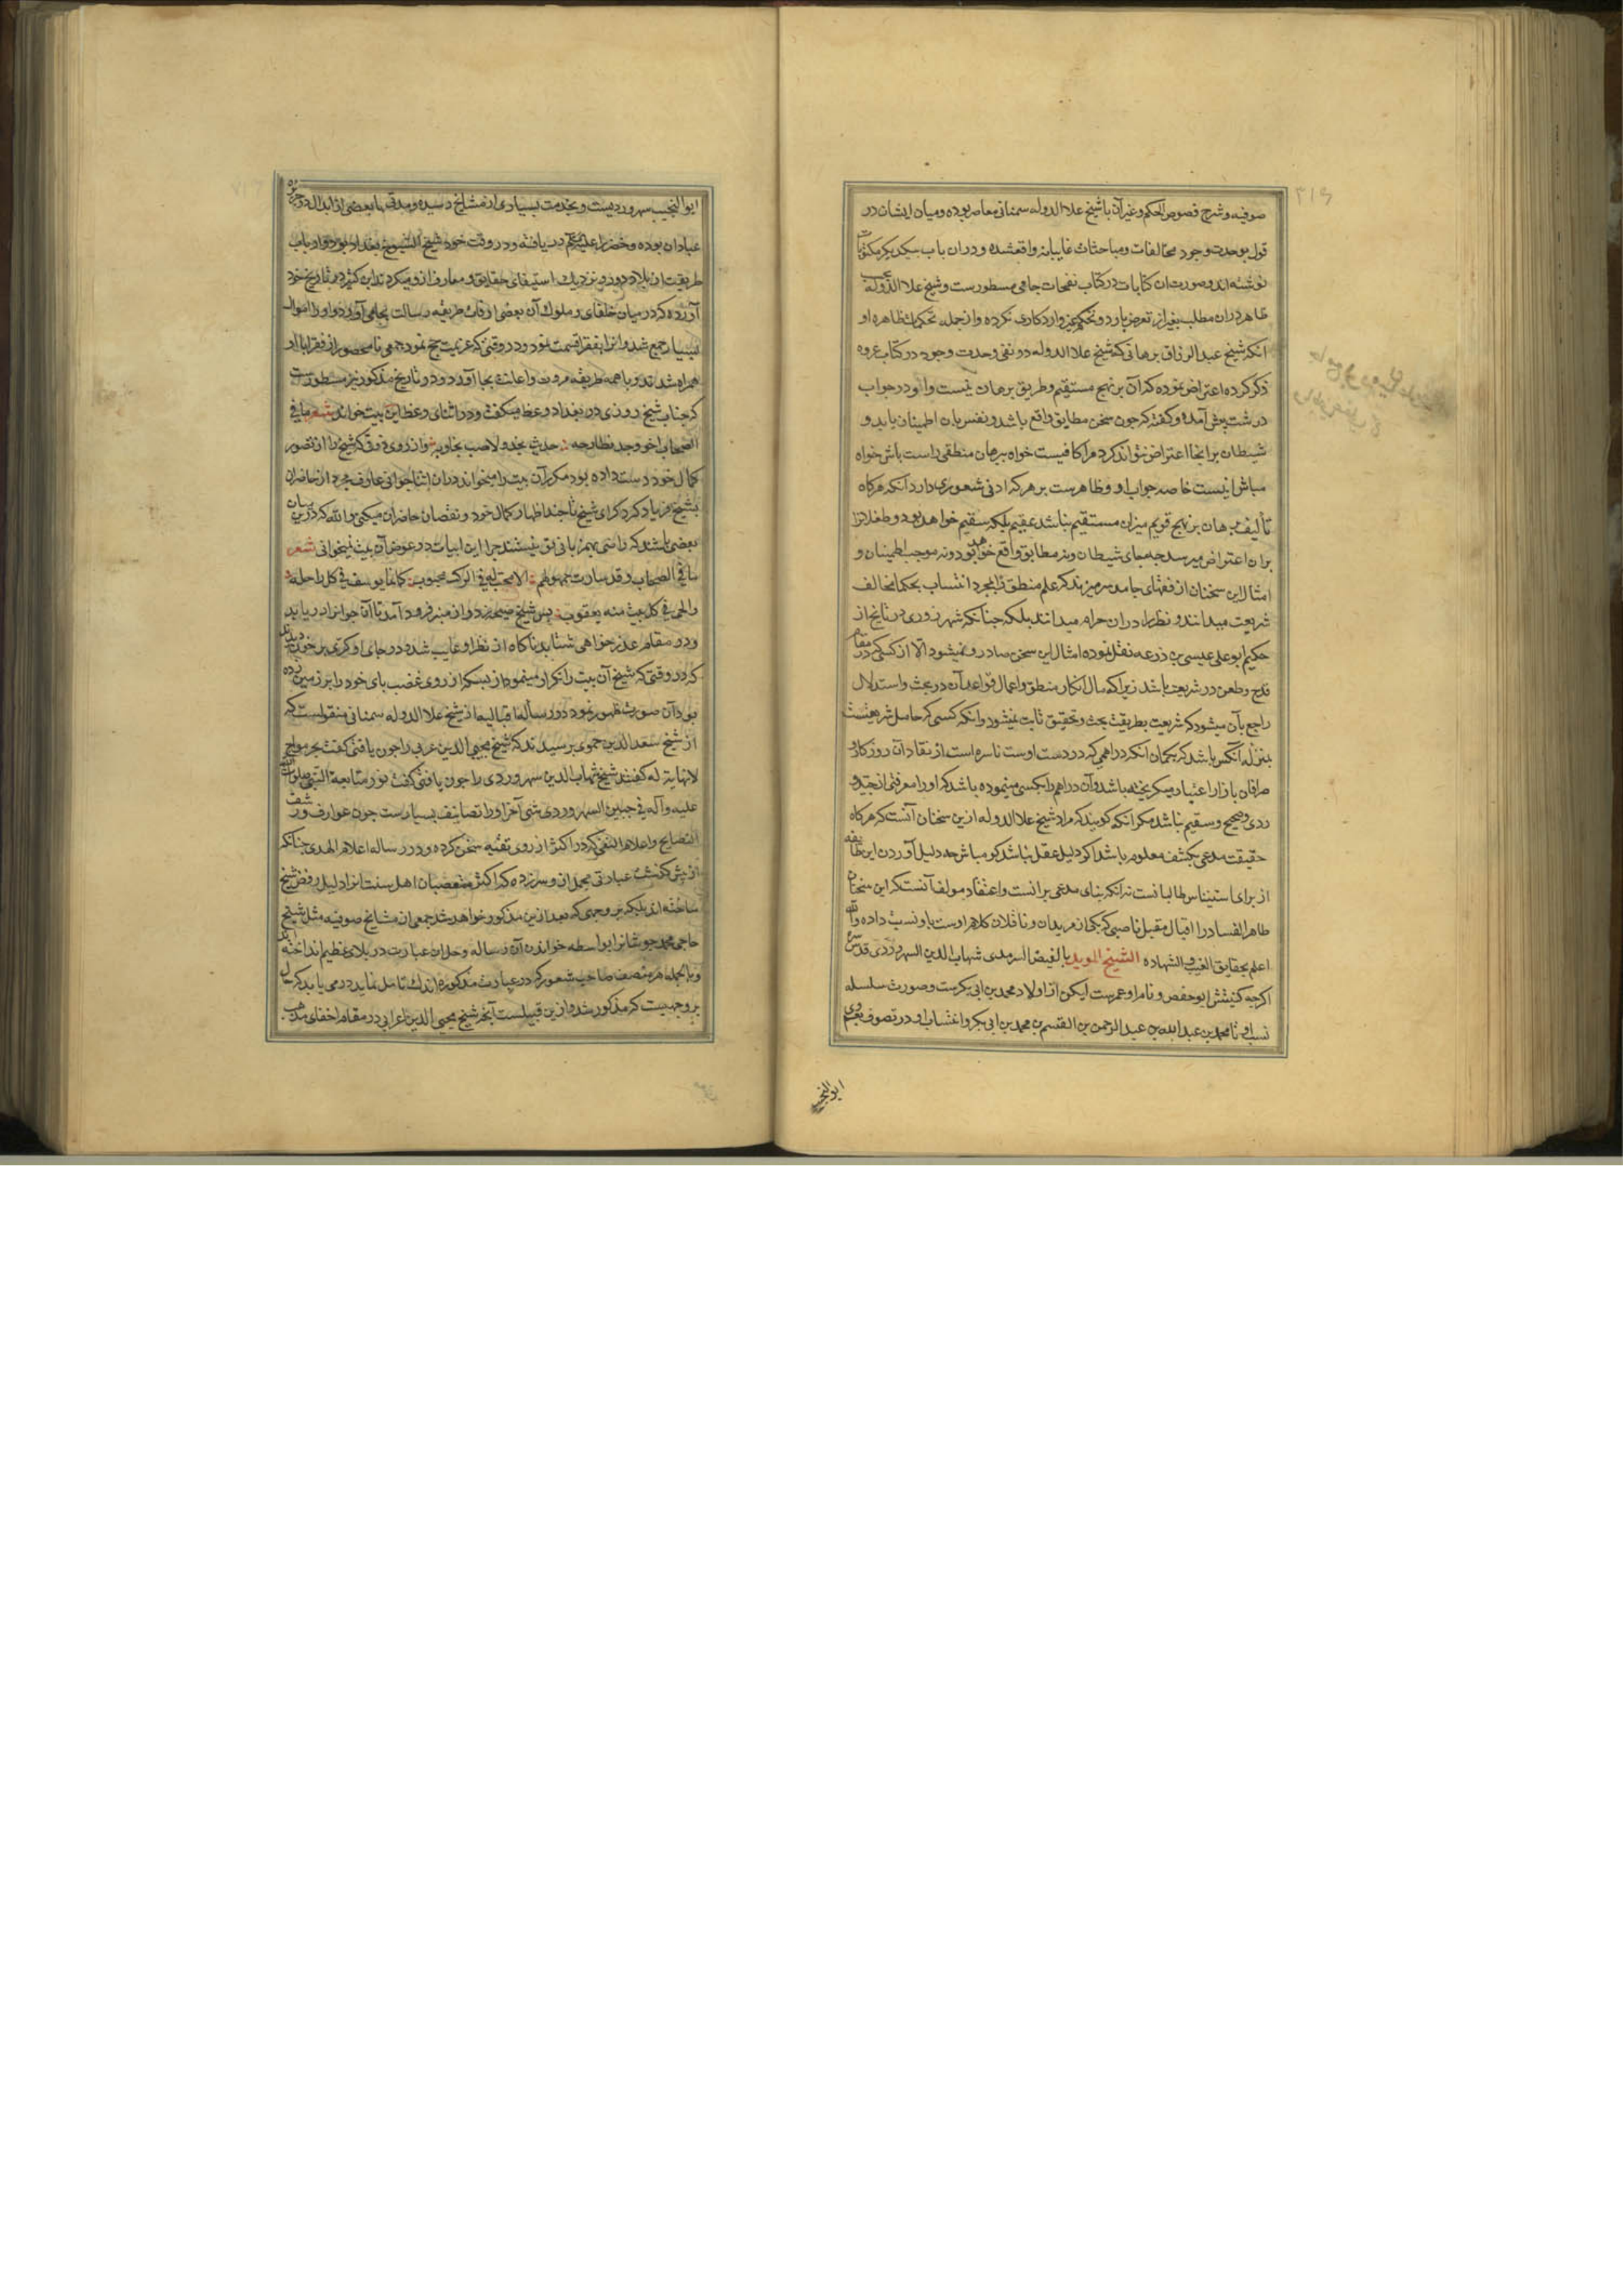 ۳۱۶
صوفیه و شرح فصوص الحکم و غیر آن با شیخ علاء الدوله سمنانی معاصر بوده و میان ایشان در
قول بوحدت وجود مخالفات و مباحثات غایبانه واقعشده و در ان باب بیکدیکر مکتوبات
نوشته اند و صورت ان کتابات در کتاب نفحات جامی مسطورست و شیخ علا الدوله
ظاهر در ان مطلب بغیر از تعرض بارد و تحکم غیر وارد کاری نکرده و از جمله تحکمات ظاهره او
انکه شیخ عبد الرزاق برهانی که شیخ علا الدوله در نفی وحدت وجود در کتاب عروه
ذکر کرده اعتراض نموده که آن بر نهج مستقیم و طریق برهان نیست و او در جواب
درشت پیش آمده و کفته که جون سخن مطابق واقع باشد و نفس بان اطمینان یابد و
شیطان بر انجا اعتراض نتواند کرد مرا کافیست خواه ببرهان منطقی راست باش خواه
مباش اینست خاصه جواب او و ظاهرست بر هر که ادنی شعوری دارد انکه هرکاه
تألیف برهان بر نهج قویم میزان مستقیم نباشد عقیم بلکه سقیم خواهد بود و طفلانرا
بران اعتراض میرسد جه جای شیطان و نه مطابق واقع خواهد بود و نه موجب اطمینان و
امثال این سخنان از فقهای جامد سر میزند که علم منطق را بمجرد انتساب بحکما مخالف
شریعت میدانند و نظر را در ان حرام میدانند بلکه جنانکه شهرزوری در تاریخ از
حکیم ابو علی عیسی بن زرعه نقل نموده امثال این سخن صادر نمیشود الا از کسی که در مقام
قدح و طعن در شریعت باشد زیرا که مآل انکار منطق و اعمال قواعد آن در بحث و استدلال
راجع بآن میشود که شریعت بطریقت بحث و تحقیق ثابت نمیشود و انکه کسی که حامل شریعتست
بمنزله آنکس باشد که بکمان انکه دراهمی که در دست اوست ناسره است از نقادان روزکار و
صرافان بازار اعتبار میکریخته باشد و آن دراهم را بکسی مینموده باشد که او را معرفتی از جید و
ردی و صحیح و سقیم نباشد مکر انکه کویند که مراد شیخ علا الدوله ازین سخنان آنست که هرکاه
حقیقت مدعی بکشف معلوم باشد اکو دلیل عقل نباشد کو مباش جه دلیل آوردن این طایفه
از برای استیناس طالبانست نه انکه بنای مدعی برانست و اعتقاد مولف آنست که این سخنان
ظاهر الفساد را اقبال مقبل ناصبی که یکی از مریدان و ناقلان کلام اوست باو نسبت داده والله
اعلم بحقایق الغیب و الشهاده الشیخ الموید بالفیض السرمدی شهاب الدین السهروردی قدس سره
اکرجه کنیتش ابو حفص و نام او عمرست لیکن از اولاد محمد بن ابی بکرست و صورت سلسله
نسب او تا محمد بن عبد الله بن عبد الرحمن بن القسم بن محمد بن ابی بکر و انتساب او در تصوف بعم وی
ابو النجیب
ابو النجیب سهروردیست و بخدمت بسیاری از مشایخ رسیده و مدتی با بعضی از ابدال در جزیره
عبادان بوده و خضر را علیه السلم در یافته و در وقت خود شیخ الشیوخ بغداد بوده و ارباب
طریقت از بلاد دور و نزدیک استیفای حقایق و معارف ازو میکردند ابن کثیر در تاریخ خود
آورده که در میان خلفای و ملوک آن بعضی اوقات طریقه رسالت بجای آورد و او را اموال
بسیار جمع شد و انرا بفقرا قسمت نمود و در وقتی که عزیمت حج نمود جمعی نامحصور از فقرا با او
همراه شدند و با همه طریقه مروت و اعانت بجا آورد و در تاریخ مذکور نیز مسطورست
که جناب شیخ روزی در بغداد وعظ میکفت و در اثنای وعظ این بیت خواند شعر ما فی
الصحاب اخو وجد نطارحه حدیث نجد ولا صب نجاریه و از روی ذوق که شیخ را از تصور
کمال خود دست داده بود مکرر آن بیت را میخواند در ان اثنا جوانی عارف مجرد از حاضران
بشیخ فریاد کرد که ای شیخ تا جند اظهار کمال خود و نقصان حاضران میکنی والله که درین میان
بعضی باشند که راضی بهمزبانی تو نیستند جرا این ابیات در عوض آن بیت نمیخوانی شعر
ما فی الصحاب وقد سارت حمولهم الا محب له فی الرکب محبوب کانما یوسف فی کل راحلة و
والحی فی کل بیت منه یعقوب پس شیخ صیحه زد و از منبر فرود آمد تا آن جوانرا دریابد
و در مقام عذر خواهی شتابد ناکاه از نظر او غایب شد و در جای او کوی پر خون دیدند
که در وقتی که شیخ آن بیت را تکرار مینمود از بسکه از روی غضب پای خود را بر زمین زده
بود آن صورت ظهور نمود و در رساله اقبالیه از شیخ علا الدوله سمنانی منقولست که
از شیخ سعد الدین حموی پرسیدند که شیخ محیی الدین عربی را جون یافتی کفت بحر مواج
لا نهایة له کفتند شیخ شهاب الدین سهروردی را جون یافتی کفت نور متابعة النبی صلوات الله
علیه و آله فی جبین السهروردی شی آخر او را تصانیف بسیارست جون عوارف و رشف
النصایح و اعلام التقی که در اکثر از روی تقیه سخن کرده و در رساله اعلام الهدی جنانکه
از پیش کذشت عبادتی مجمل ازو سرزده که اکثر متعصبان اهل سنت انرا دلیل رفض شیخ
ساخته اند بلکه بر وجهی که بعد ازین مذکور خواهد شد جمعی از مشایخ صوفیه مثل شیخ
حاجی محمد جوشانرا بواسطه خواندن آن رساله و حل ان عبارت در بلای عظیم انداخته اند
و بالجمله هر منصف صاحب شعور که در عبارت مذکوره اندک تامل نماید در می یابد که حال
بر وجهیست که مذکور شد و ازین قبیلست آنجه شیخ محیی الدین اعرابی در مقام اخفای مذهب